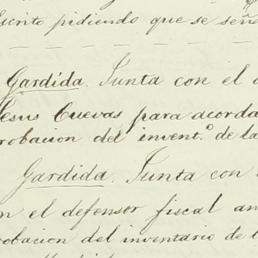 Escrito pidiendo que se señ
Gardida. Junta con el d
Jesus Cuevas para acorda
robacion del invent.º de la
Gardida. Junta con
n el defensor fiscal an
robacion del inventario de l